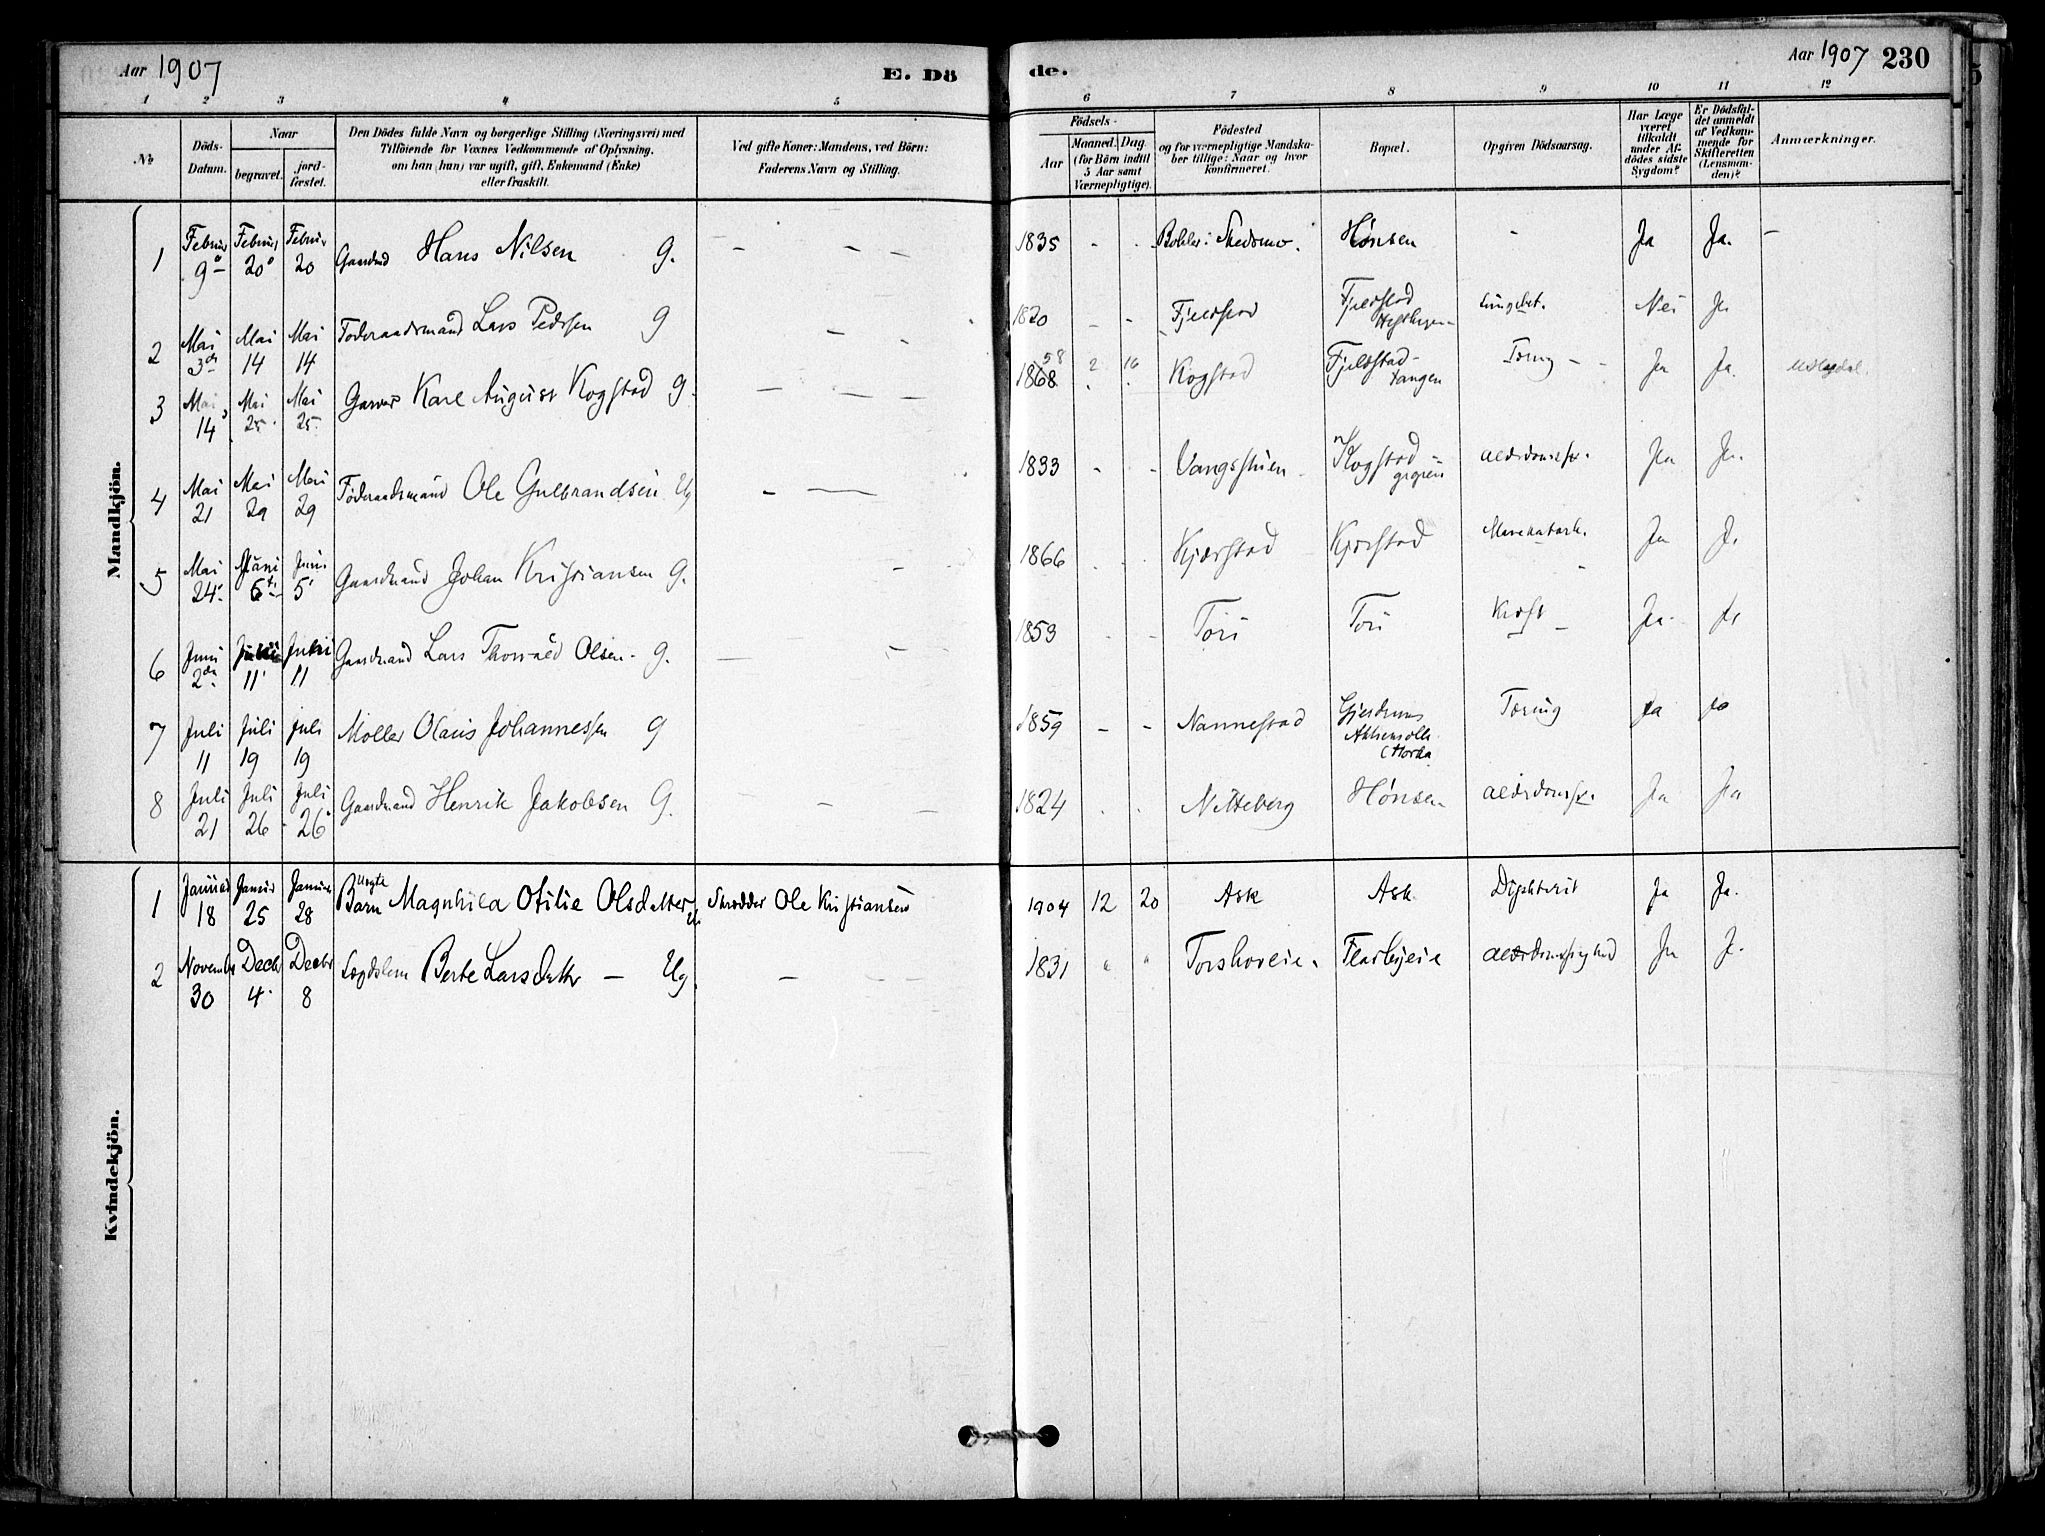 Aar 1907
E. Dö
de.
Aar 1907 230
1 2 3 4 5 6 7 8 9 10 11 12
No
Döds-
Datum.
Naar
begravet.
jord-
fæstet.
Den Dödes fulde Navn og borgerlige Stilling (Næringsvei) med
Tilföiende for Voxnes Vedkommende af Oplysning,
om han (hun) var ugift, gift, Enkemand (Enke)
eller fraskilt.
Ved gifte Koner: Mandens, ved Börn:
Faderens Navn og Stilling.
Födsels-
Aar
Maaned. Dag.
(for Börn indtil
5 Aar samt
Værnepligtige).
Födested
og for værnepligtige Mandska-
ber tillige: Naar og hvor
konfirmeret.
Bopæl.
Opgiven Dödsaarsag.
Har Læge
været
tilkaldt
under Af-
dödes sidste
Sygdom?
Er Dödsfal-
det anmeldt
af Vedkom-
mende for
Skifteretten
(Lensman-
den)?
Anmærkninger.
Mandkjön.
1 Februr 9 Februr 20 Februr 20 Hans Nilsen G. - - 1835 - - Bohler i Skedsmo. Hønsen - Ja Ja. -
2 Mai 3de Mai 14 Mai 14 Føderaadsmand Lars Pedersen G - - 1820 - - Fjeldstad Fjeldstad Nei Ja
3 Mai 14 Mai 25 Mai 25 Garver Karl August Kogstad G. - - 1868 58 2 16 Kogstad Fjeldstad-
tangen Tæring - Ja Ja.
4 Mai 21 Mai 29 Mai 29 Føderaadsmand Ole Gulbrandsen Ug - - 1833 - - Vangsstuen Kogstad Ja Ja.
5 Mai 24 Juni 5 Juni 5 Gaardmand Johan Kristiansen G. - 1866 Kjærstad Kjærstad Mavekatarh. Ja J.
6 Juni 2den Juli 11 Juli 11 Gaardmand Lars Thorvald Olsen - G. - - 1853 - - Kræft - Ja. Ja
7 Juli 11 Juli 19 Juli 19 Møller Olaus Johannessen G 1859 - - Nannestad Gjerdrums Tæring Ja Ja
8 Juli 21 Juli 26 Juli 26 Gaardmand Henrik Jakobsen G. - - 1824 Nitteberg Hønsen Ja Ja
Kvindekjön.
1 Januar 18 Januar 25 Januar 28 Uægte
Barn Magnhild Otilie Olsdatter Skrædder Ole Kristiansen 1904 12 20 Ask Ask Diphterit Ja Ja.
2 Novembr 30 Decbr 4 Decbr 8 Lægdslem Berte Larsdatter - Ug. - - 1831 " " Alderdomssvaghed Ja J.